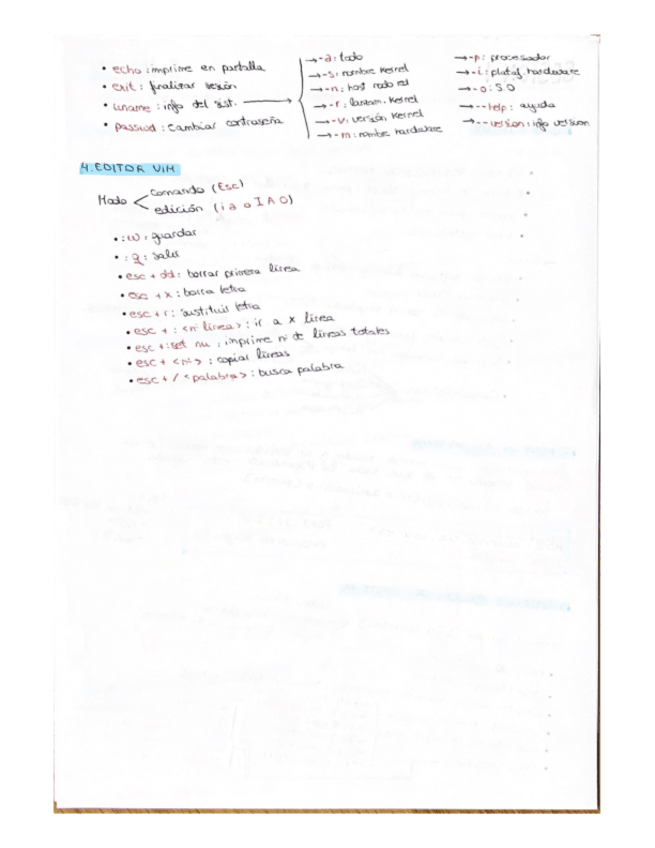 • echo : imprime en pantalla
• exit : finalizar sesión
• uname : info del sist. →
• passwd : cambiar contraseña
→ -a : todo
→ -s : nombre Kernel
→ -n : host nodo red
→ -r : lanzam. Kernel
→ -v : versión Kernel
→ -m : nombre hardware
→ -p : procesador
→ -i : plataf. hardware
→ -o : S.O
→ --help : ayuda
→ --version : info version
4. EDITOR VIM
Modo < comando (Esc)
edición (i a o I A O)
• :w : guardar
• :q : salir
• esc + dd : borrar primera línea
• esc + x : borra letra
• esc + r : sustituir letra
• esc + : <nº línea> : ir a x línea
• esc + :set nu : imprime nº de líneas totales
• esc + <nº> : copiar líneas
• esc + / <palabra> : busca palabra